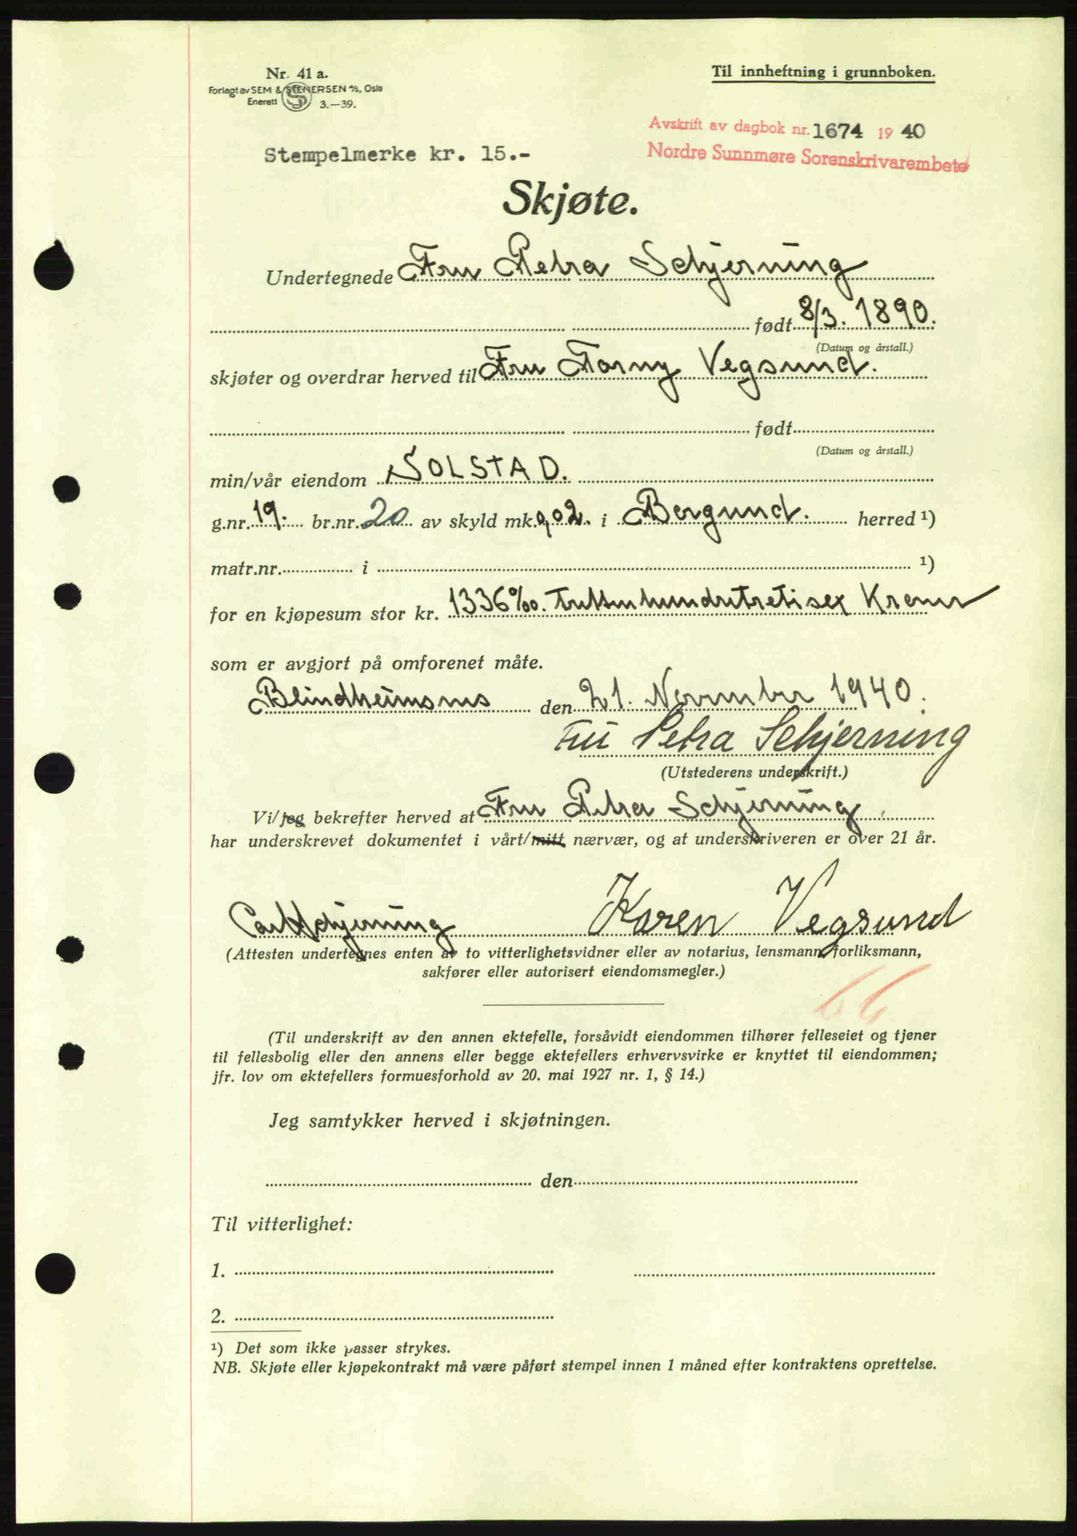 Nr. 41 a.
Forlagt av SEM & STENERSEN A/S, Oslo
Enerett 3.—39.
Til innheftning i grunnboken.
Avskrift av dagbok nr. 1674 1940
Nordre Sunnmøre Sorenskrivarembete
Stempelmerke kr. 15.-
Skjøte.
Undertegnede Fru Petra Schjerning
født 8/3. 1890.
(Datum og årstall.)
skjøter og overdrar herved til Fru Torny Vegsund.
født
(Datum og årstall.)
min/vår eiendom SOLSTAD.
g.nr. 19. br.nr. 20 av skyld mk. 0,02. i Borgund. herred ¹)
matr.nr. i ¹)
for en kjøpesum stor kr. 1336 0/00. Trettenhundretretisex Kroner
som er avgjort på omforenet måte.
Blindheimsnes den 21. November 1940.
Fru Petra Schjerning
(Utstederens underskrift.)
Vi/jeg bekrefter herved at Fru Petra Schjerning
har underskrevet dokumentet i vårt/mitt nærvær, og at underskriveren er over 21 år.
Carl Schjerning Karen Vegsund
(Attesten undertegnes enten av to vitterlighetsvidner eller av notarius, lensmann, forliksmann,
sakfører eller autorisert eiendomsmegler.)
66
(Til underskrift av den annen ektefelle, forsåvidt eiendommen tilhører felleseiet og tjener
til fellesbolig eller den annens eller begge ektefellers erhvervsvirke er knyttet til eiendommen;
jfr. lov om ektefellers formuesforhold av 20. mai 1927 nr. 1, § 14.)
Jeg samtykker herved i skjøtningen.
den
Til vitterlighet:
1.
2.
¹) Det som ikke passer strykes.
NB. Skjøte eller kjøpekontrakt må være påført stempel innen 1 måned efter kontraktens oprettelse.